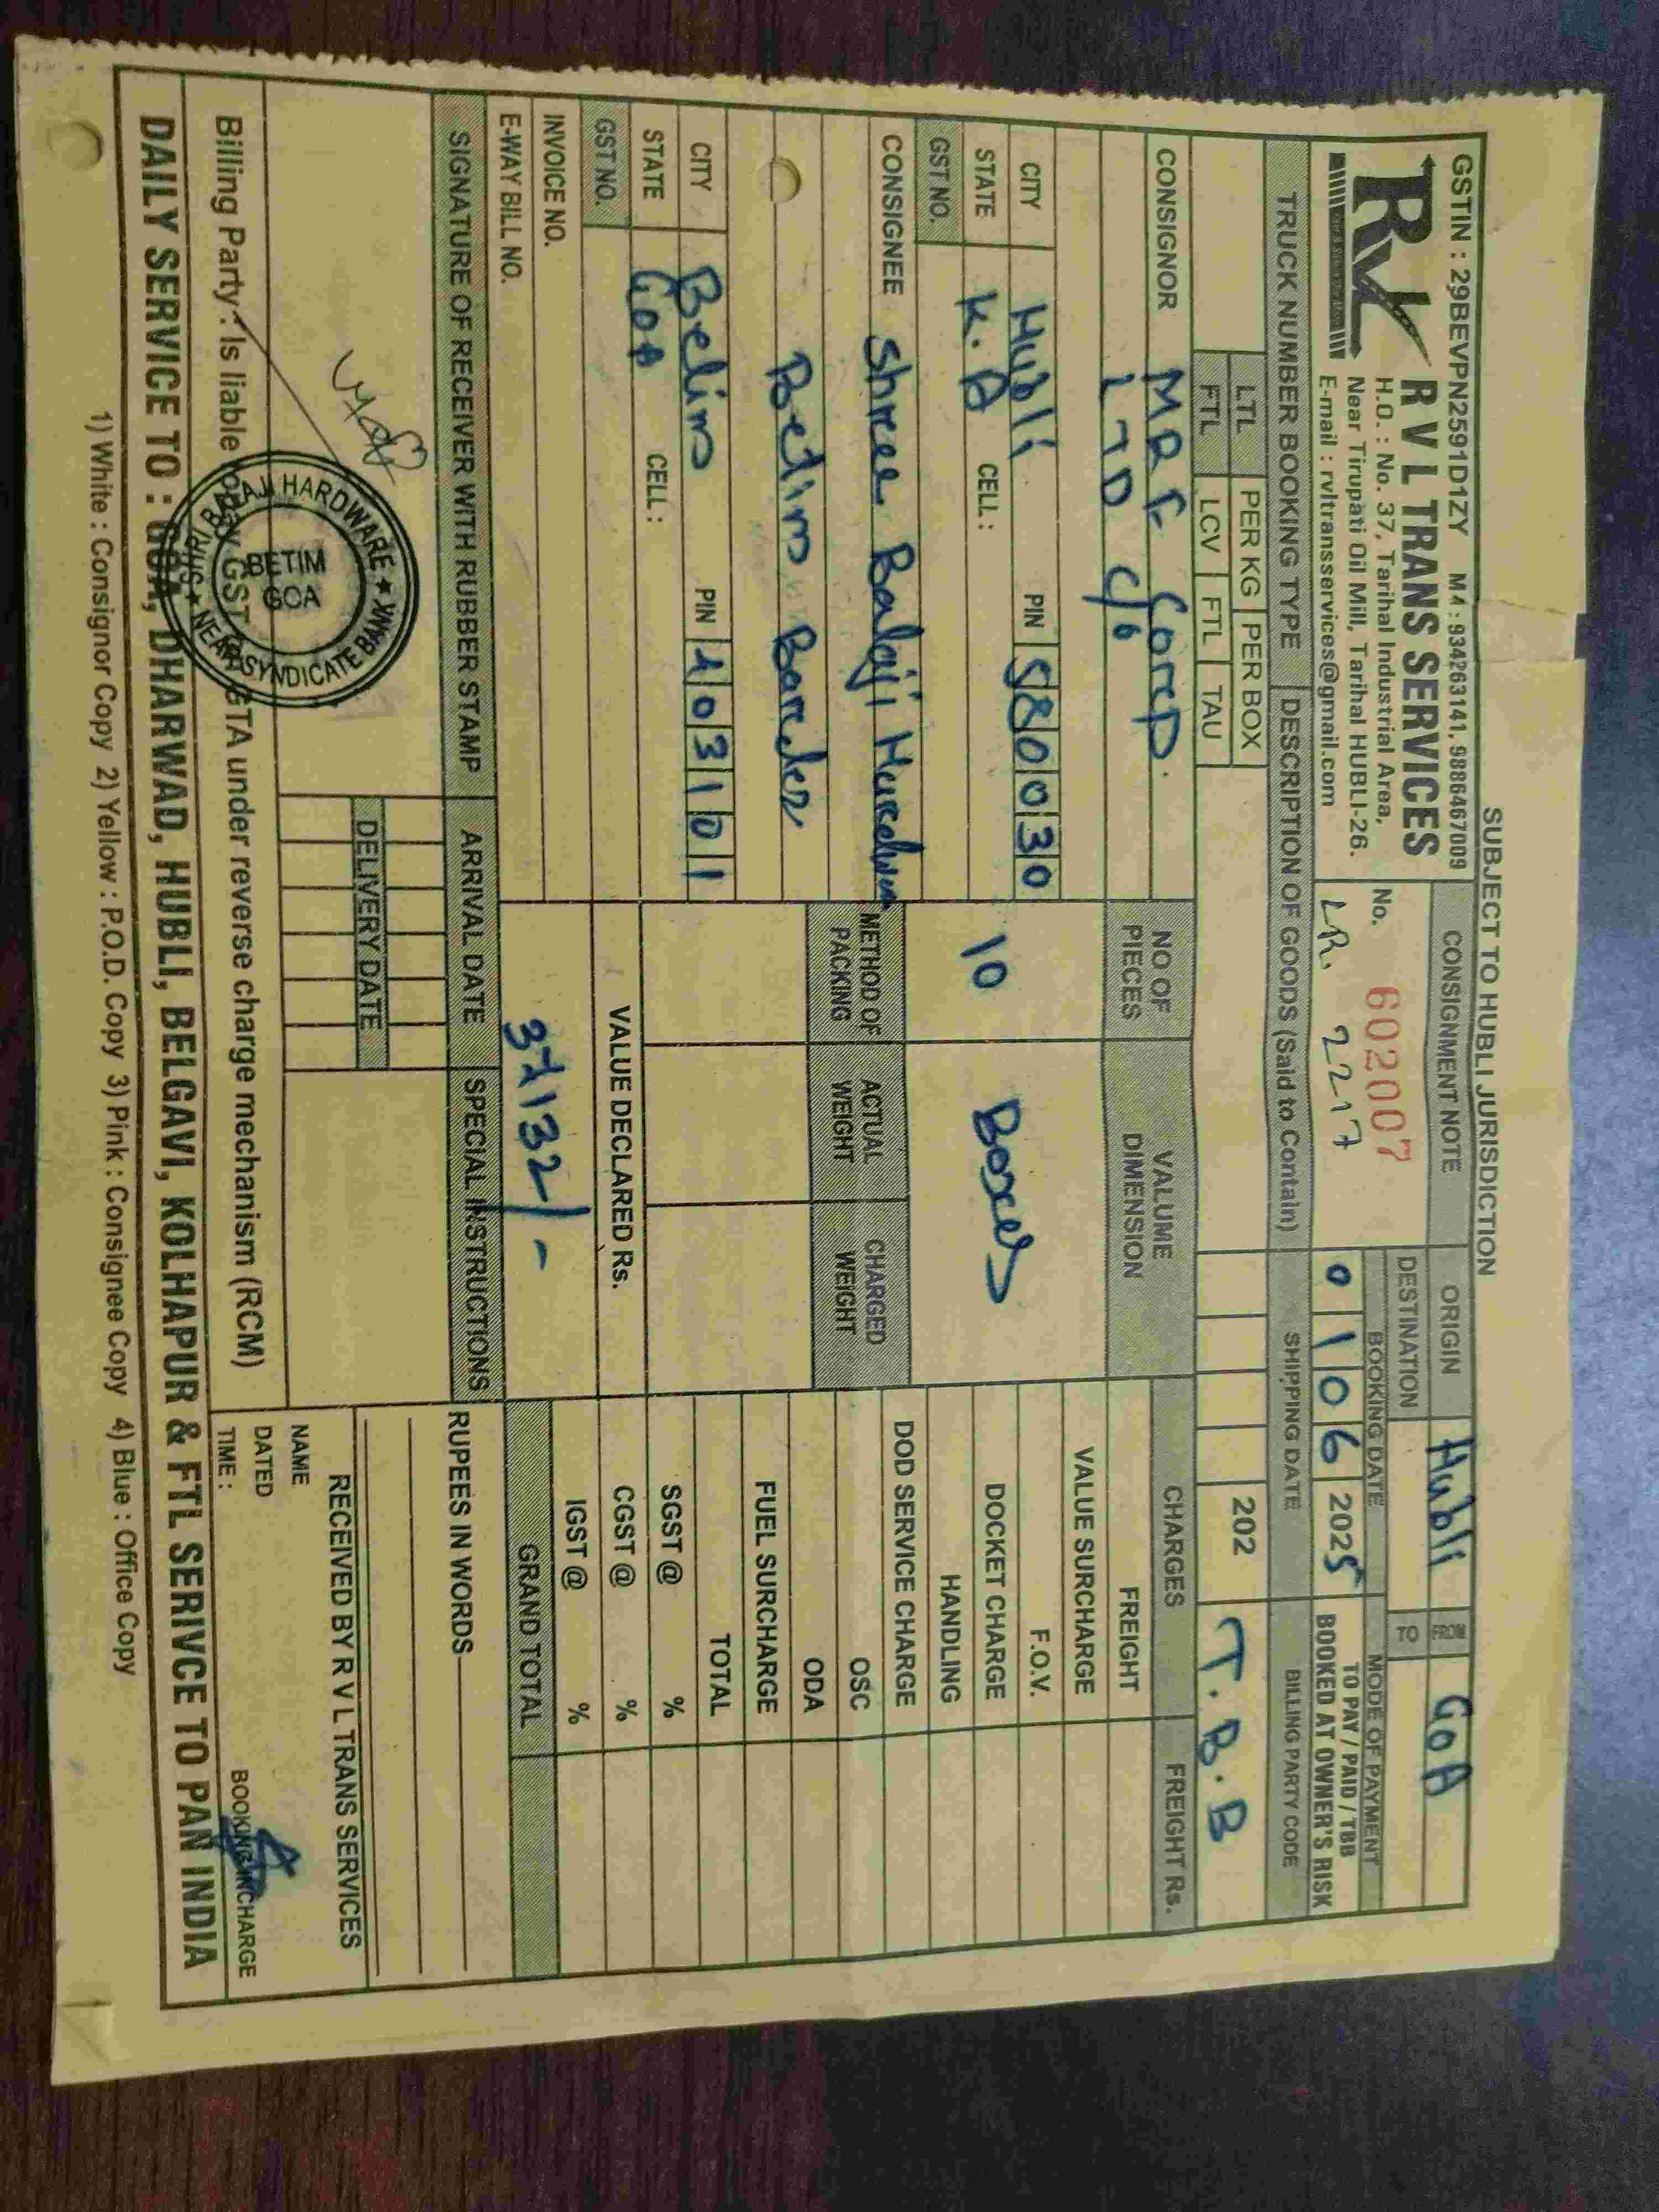 SUBJECT TO HUBLI JURISDICTION
GSTIN : 29BEVPN2591D1ZY M4 : 9342263141, 9886467009
RVL R V L TRANS SERVICES
H.O. : No. 37, Tarihal Industrial Area,
Near Tirupati Oil Mill, Tarihal HUBLI-26.
E-mail : rvltransservices@gmail.com
CONSIGNMENT NOTE
No. 602007
LR. 2217
ORIGIN Hubli FROM GOA
DESTINATION TO
BOOKING DATE MODE OF PAYMENT
0 1 0 6 2025 TO PAY / PAID / TBB
BOOKED AT OWNER'S RISK
TRUCK NUMBER BOOKING TYPE DESCRIPTION OF GOODS (Said to Contain) SHIPPING DATE BILLING PARTY CODE
LTL PER KG PER BOX
FTL LCV FTL TAU
202 T.B.B
CONSIGNOR MRF Corp.
LTD C/o
CITY Hubli PIN 580030
STATE K.A CELL :
GST NO.
CONSIGNEE Shree Balaji
Betim Bardez
CITY Betim PIN 403101
STATE GOA CELL :
GST NO.
INVOICE NO.
E-WAY BILL NO.
NO OF PIECES VALUME DIMENSION
10 Boxes
METHOD OF PACKING ACTUAL WEIGHT CHARGED WEIGHT
VALUE DECLARED Rs.
37132/-
CHARGES FREIGHT Rs.
FREIGHT
VALUE SURCHARGE
F.O.V.
DOCKET CHARGE
HANDLING
DOD SERVICE CHARGE
OSC
ODA
FUEL SURCHARGE
TOTAL
SGST @ %
CGST @ %
IGST @ %
GRAND TOTAL
SIGNATURE OF RECEIVER WITH RUBBER STAMP ARRIVAL DATE SPECIAL INSTRUCTIONS
DELIVERY DATE
RUPEES IN WORDS
SHRI BALAJI HARDWARE ★ NEAR SYNDICATE BANK ★
BETIM
GOA
RECEIVED BY R V L TRANS SERVICES
NAME
DATED
TIME :
BOOKING INCHARGE
Billing Party : Is liable to pay GST to GTA under reverse charge mechanism (RCM)
DAILY SERVICE TO : GOA, DHARWAD, HUBLI, BELGAVI, KOLHAPUR & FTL SERIVCE TO PAN INDIA
1) White : Consignor Copy 2) Yellow : P.O.D. Copy 3) Pink : Consignee Copy 4) Blue : Office Copy